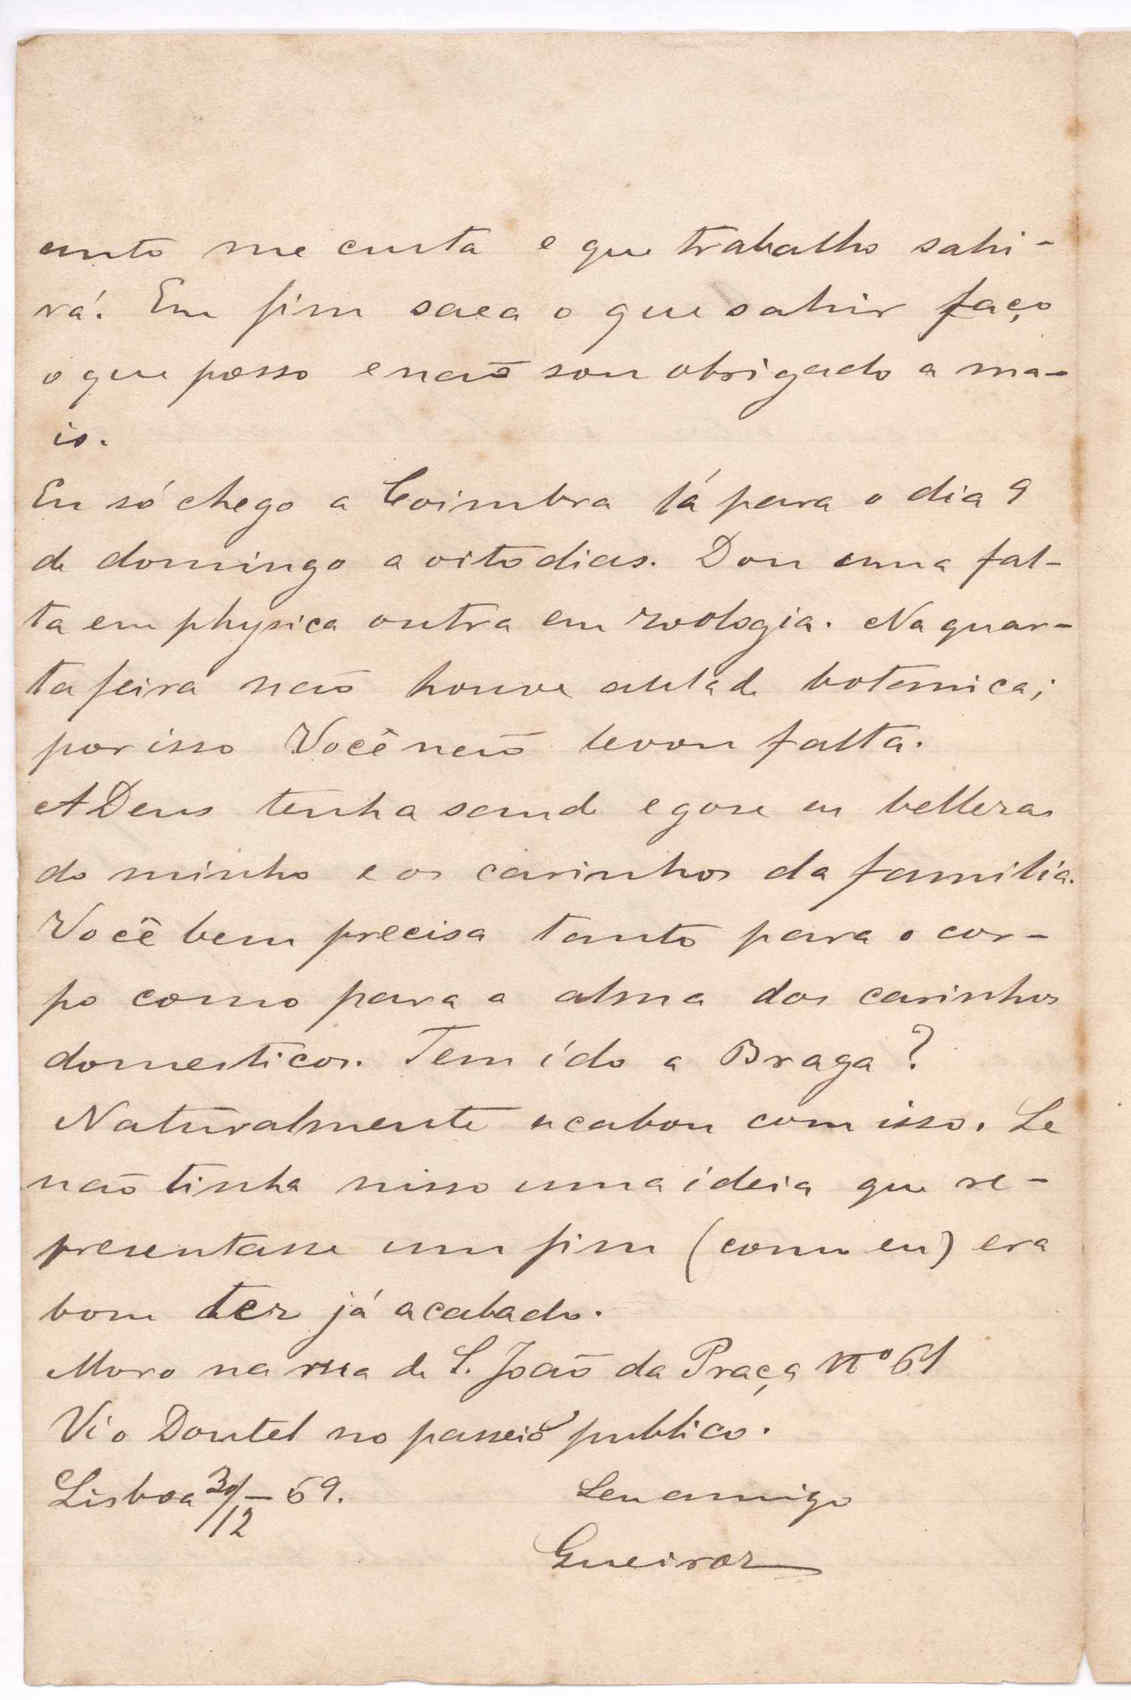 anto me custa e que trabalho sahi-
rá! Em fim saea o que sahir faço
o que posso e não sou obrigado a ma-
is.
Eu só chego a Coimbra lá para o dia 9
de domingo a oito dias. Dou uma fal-
ta em physica outra em zoologia. Na quar-
ta feira não houve aula de botanica;
por isso Você não levou falta.
A Deus tenha saude e gose as bellezas
do minho e os carinhos da familia.
Você bem precisa tanto para o cor-
po como para a alma dos carinhos
domesticos. Tem ído a Braga?
Naturalmente acabou com isso. Se
não tinha nisso uma ídeia que re-
presentasse um fim (como eu) era
bom ter já acabado.
Moro na rua de S. João da Praça nº 61
Vi o Doutel no passeio publico.
Lisboa 30/12 – 69.
Seu amigo
Queiroz